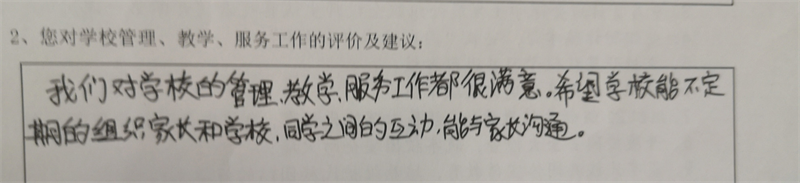 2、您对学校管理、教学、服务工作的评价及建议:
我们对学校的管理、教学、服务工作都很满意。希望学校能不定
期的组织家长和学校,同学之间的互动,能与家长沟通。